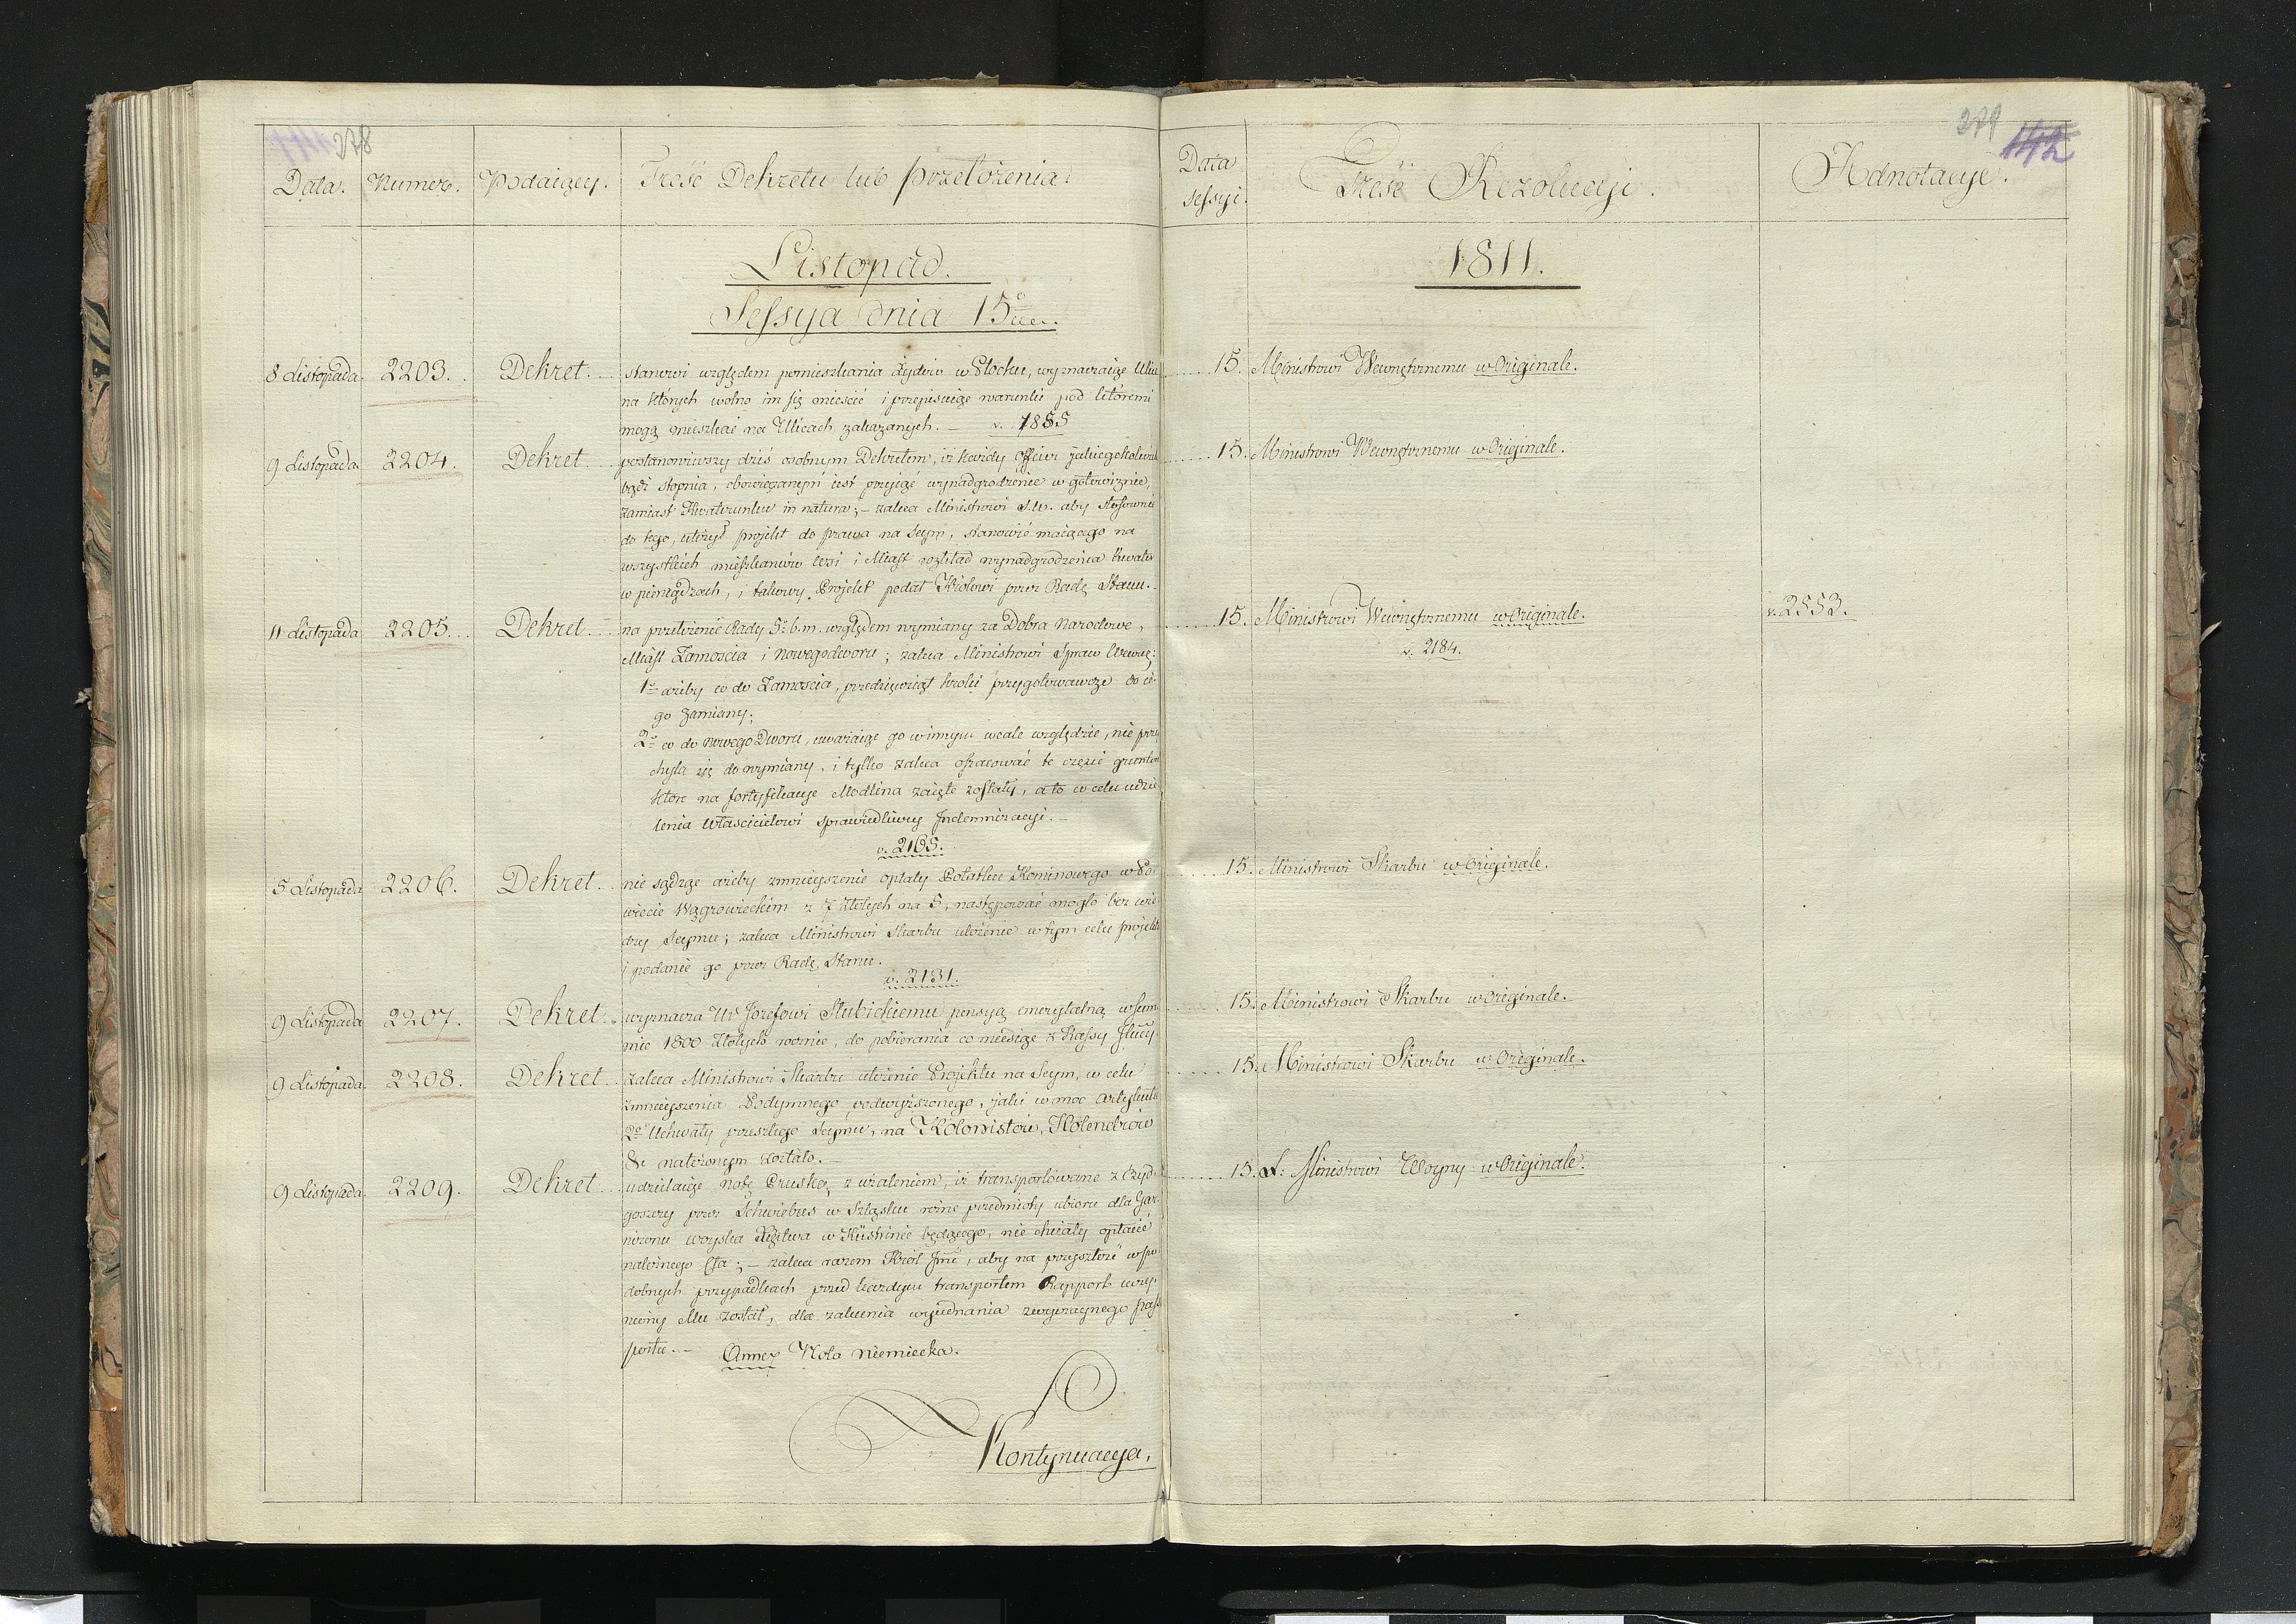 278
Data.
Numer.
Podaiący.
Treść Dekretu lub przełożenia.
Listopad.
Sessya dnia 15<sup>o</sup>
8 Listopada. 2203. Dekret. stanowi względem pomieszkania Żydów w Płocku, wyznaczaiąc Ulice
na których wolno im się mieścić i przepisuiąc warunki pod któremi
mogą mieszkać na Ulicach zakazanych. — v. 1885
9 Listopada 2204. Dekret postanowiwszy dziś osobnym Dekretem, iż każdy officier jakiegokolwiek
bądź stopnia, obowiązanym iest przyiąć wynadgrodzenie w gotowiznie,
zamiast Kwaterunku in natura; — zaleca Ministrowi S.W. aby stosownie
do tego, ułożył projekt do prawa na Seym, stanowić maiącego na
wszystkich mieszkańców wsi i Miast rozkład wynadgrodzenia kwater
w pieniądzach, i takowy Projekt podał Królowi przez Radę Stanu.
11 Listopada 2205. Dekret na przełożenie Rady 5. b.m. względem wymiany za Dobra Narodowe,
Miast Zamościa i Nowegodworu; zaleca Ministrowi Spraw Wewnę:
1<sup>o</sup> ażeby co do Zamościa, przedsięwziął kroki przygotowawcze do ie-
go zamiany;
2<sup>o</sup> co do Nowego Dworu, uważaiąc go w innym wcale względzie, nie przy
chyla się do wymiany, i tylko zaleca oszacować te części gruntów
które na fortyfikacye Modlina zaięte zostały, a to w celu udzie
lenia właścicielowi sprawiedliwey Indemnizacyi. —
v. 2165.
5 Listopada 2206. Dekret. nie sądząc ażeby zmnieyszenie opłaty Podatku Kominowego w Po-
wiecie Wągrowieckim z 7 Złotych na 5, następować mogło bez wie-
dzy Seymu; zaleca Ministrowi Skarbu ułożenie w tym celu projektu
i podanie go przez Radę Stanu.
v. 2131.
9 Listopada 2207. Dekret. wyznacza Ur Jozefowi Słubickiemu pensyą emerytalną w Sum-
mie 1800 Złotych rocznie, do pobierania co miesiąc z Kassy
9 Listopada. 2208. Dekret. zaleca Ministrowi Skarbu ułożenie Projektu na Seym, w celu
zmnieyszenia Podymnego podwyższonego, jaki w moc Artykułu
2<sup>o</sup> Uchwały przeszłego Seymu, na Kolonistów, Holendrów
&c nałożonym zostało. —
9 Listopada. 2209. Dekret. udzielaiąc Notę Pruską z użaleniem, iż transportowane z Byd-
goszczy przez Schwiebus w Szląsku różne przedmioty ubioru dla Gar-
nizonu woyska Xięztwa w Küstrinie będącego, nie chciały opłacić
należnego Cła; — zaleca razem Król Jmć, aby na przyszłość w po-
dobnych przypadkach przed każdym transportem Rapport uczy-
niony Mu został, dla zalecenia wyiednania zwyczaynego pasz-
portu. — Annex Nota niemiecka.
Kontynuacya.
279
142
Data Sessyi.
Treść Rezolucyi.
Adnotacye.
1811.
15. Ministrowi Wewnętrznemu w Originale.
15. Ministrowi Wewnętrznemu w Originale.
15. Ministrowi Wewnętrznemu w Originale. v. 2553.
v. 2184.
15. Ministrowi Skarbu w Originale.
15. Ministrowi Skarbu w Originale.
15. Ministrowi Skarbu w Originale.
15. Ministrowi Woyny w Originale.